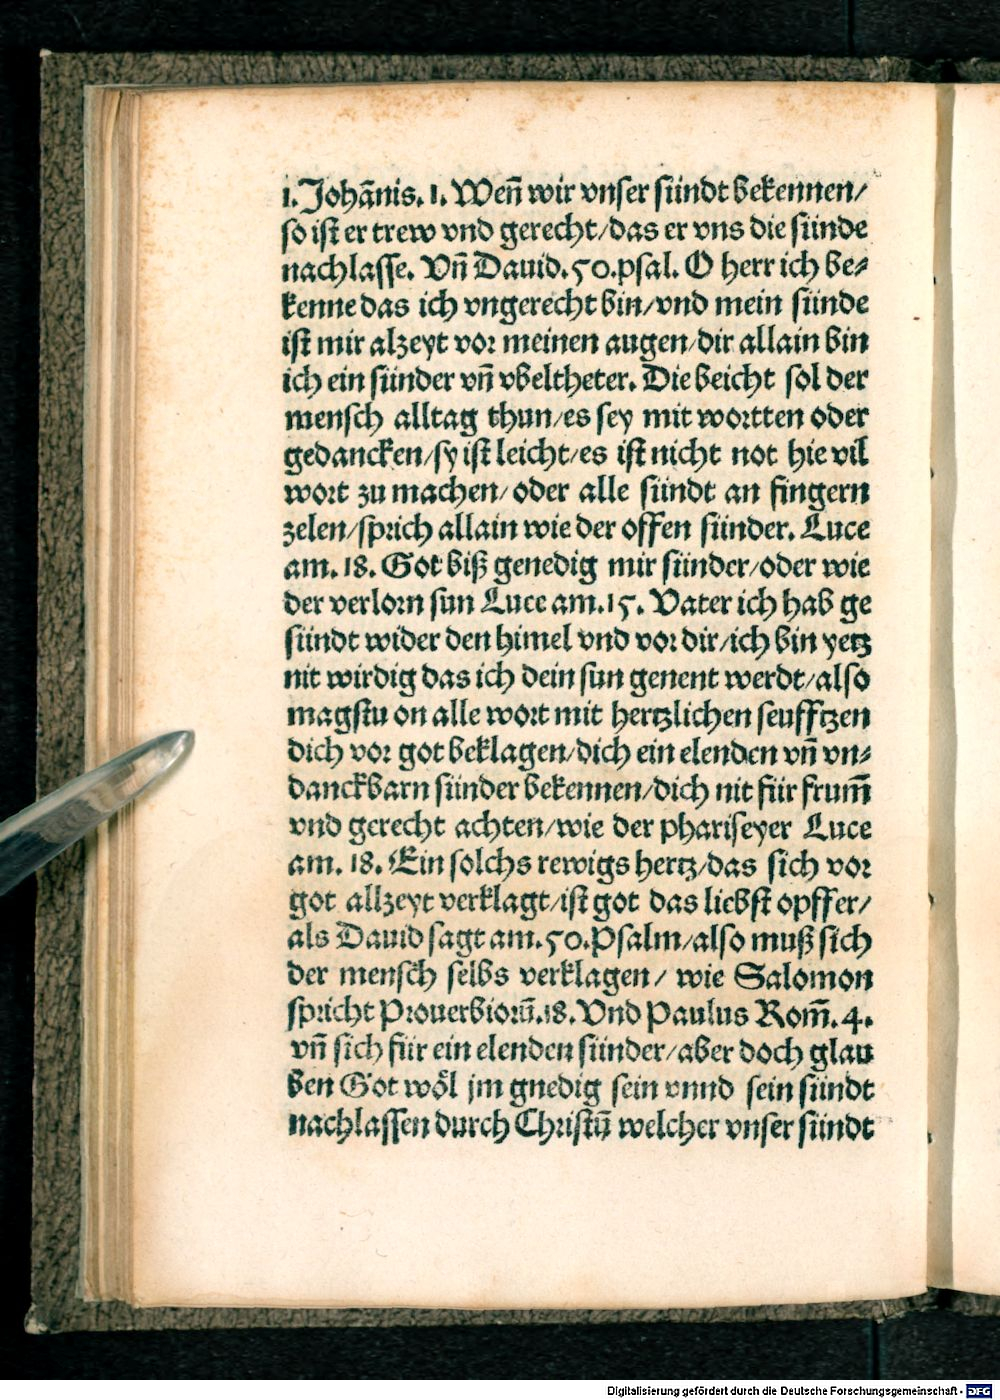 1. Johãnis. 1. Weñ wir vnser sündt bekennen/
so ist er trew vnd gerecht/das er vns die sünde
nachlasse. Vñ Dauid. 50. psal. O herr ich be-
kenne das ich vngerecht bin/vnd mein sünde
ist mir alzeyt vor meinen augen/dir allain bin
ich ein sünder vñ vbeltheter. Die beicht sol der
mensch alltag thun/es sey mit wortten oder
gedancken/sy ist leicht/es ist nicht not hie vil
wort zu machen/oder alle sündt an fingern
zelen/sprich allain wie der offen sünder. Luce
am. 18. Got biß genedig mir sünder/oder wie
der verlorn sun Luce am. 15. Vater ich hab ge
sündt wider den himel vnd vor dir/ich bin yetz
nit wirdig das ich dein sun genent werdt/also
magstu on alle wort mit hertzlichen seufftzen
dich vor got beklagen/dich ein elenden vñ vn-
danckbarn sünder bekennen/dich nit für frum̃
vnd gerecht achten/wie der phariseyer Luce
am. 18. Ein solchs rewigs hertz/das sich vor
got allzeyt verklagt/ist got das liebst opffer/
als Dauid sagt am. 50. Psalm/also muß sich
der mensch selbs verklagen/ wie Salomon
spricht Prouerbiorũ. 18. Vnd Paulus Rom̃. 4.
vñ sich für ein elenden sünder/aber doch glau
ben Got wöl jm gnedig sein vnnd sein sündt
nachlassen durch Christũ welcher vnser sündt
Digitalisierung gefördert durch die Deutsche Forschungsgemeinschaft - DFG